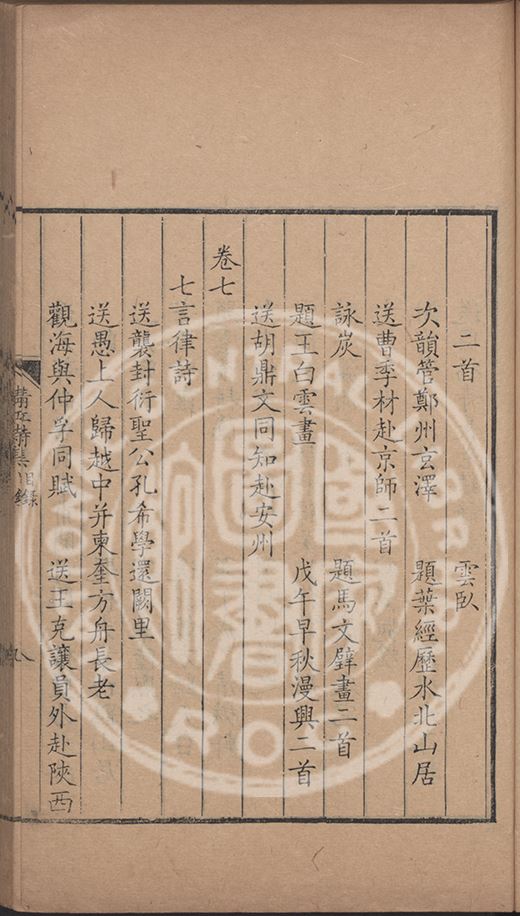 二首　雲臥
次韻管鄭州玄澤　題葉經歷水北山居
送曹季材赴京師二首
詠炭　題馬文璧畫二首
題王白雲畫　戊午早秋漫興二首
送胡鼎文同知赴安州
卷七
七言律詩
送襲封衍聖公孔希學還闕里
送愚上人歸越中并柬奎方舟長老
觀海與仲孚同賦　送王克讓員外赴陝西
詩集目錄
八